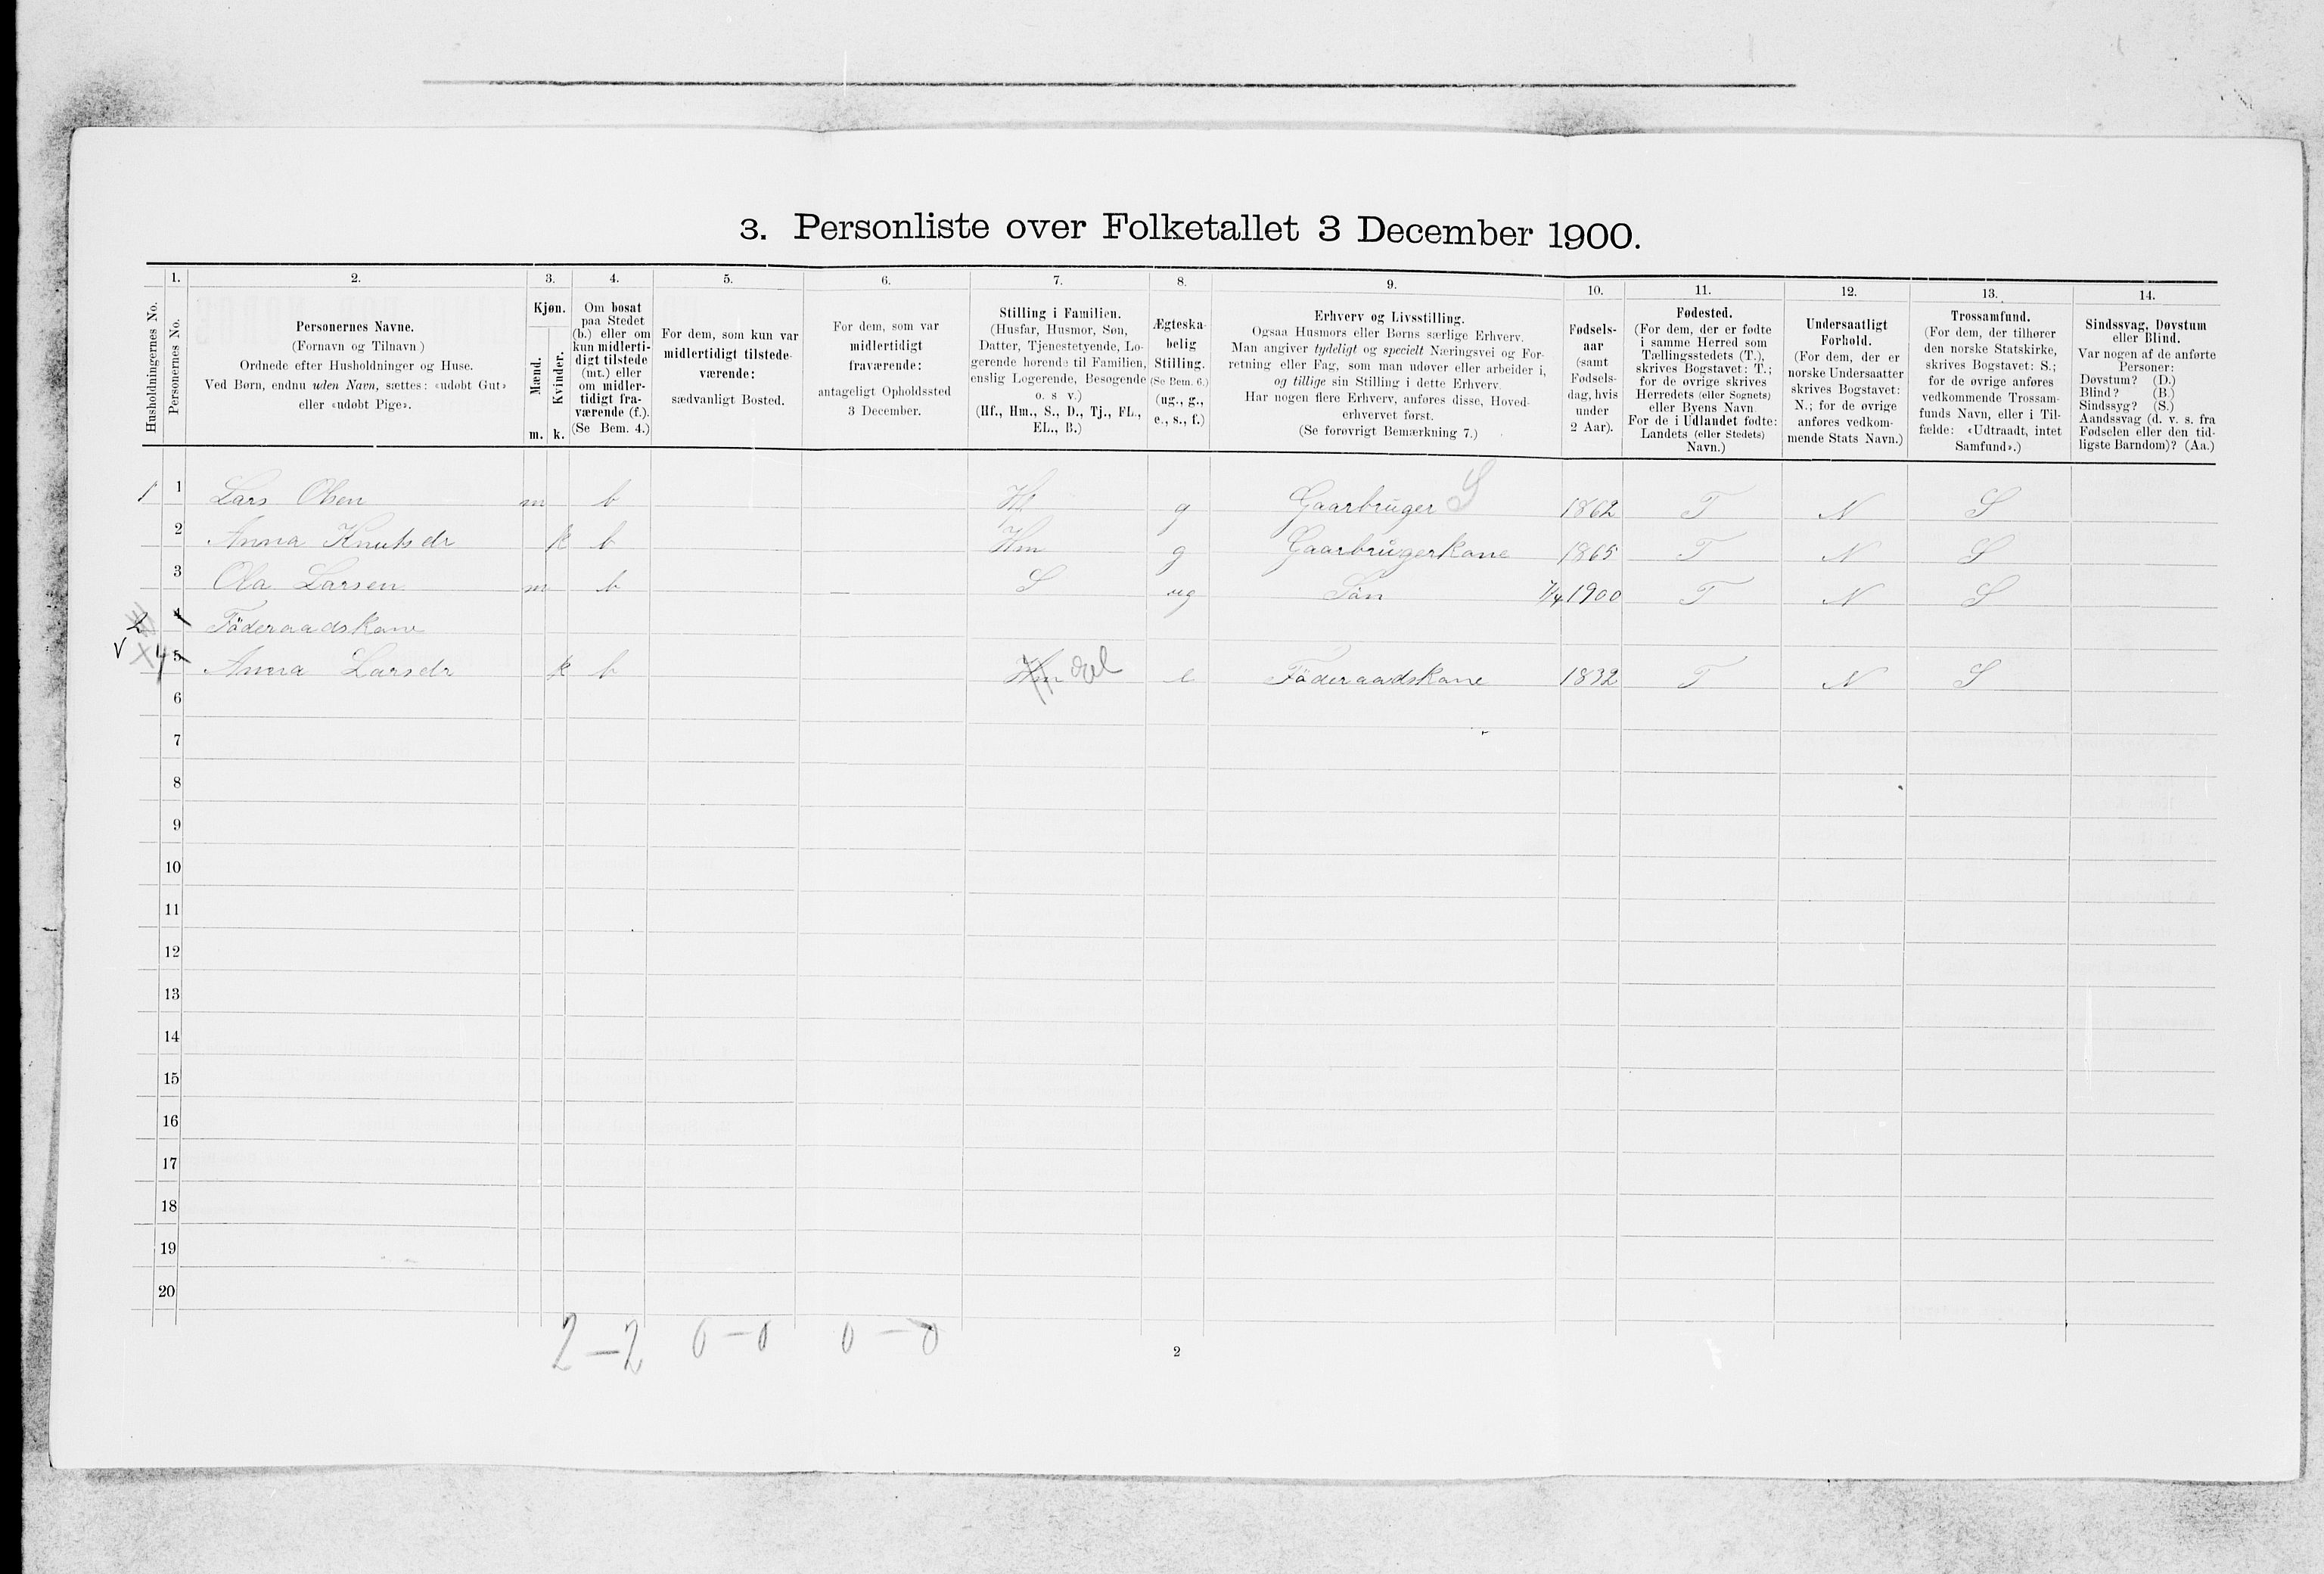 3. Personliste over Folketallet 3 December 1900.
Husholdningernes No.
1.
Personernes No.
2.
Personernes Navne.
(Fornavn og Tilnavn.)
Ordnede efter Husholdninger og Huse.
Ved Børn, endnu uden Navn, sættes: «udøbt Gut»
eller «udøbt Pige».
3.
Kjøn.
Mænd.
Kvinder.
m. k.
4.
Om bosat
paa Stedet
(b.) eller om
kun midlerti-
digt tilstede
(mt.) eller
om midler-
tidigt fra-
værende (f.).
(Se Bem. 4.)
5.
For dem, som kun var
midlertidigt tilstede-
værende:
sædvanligt Bosted.
6.
For dem, som var
midlertidigt
fraværende:
antageligt Opholdssted
3 December.
7.
Stilling i Familien.
(Husfar, Husmor, Søn,
Datter, Tjenestetyende, Lo-
gerende hørende til Familien,
enslig Logerende, Besøgende
o. s v.)
(Hf., Hm., S., D., Tj., FL.,
EL., B.)
8.
Ægteska-
belig
Stilling.
(Se Bem. 6.)
(ug., g.,
e., s., f.)
9.
Erhverv og Livsstilling.
Ogsaa Husmors eller Børns særlige Erhverv.
Man angiver tydeligt og specielt Næringsvei og For-
retning eller Fag, som man udøver eller arbeider i,
og tillige sin Stilling i dette Erhverv.
Har nogen flere Erhverv, anføres disse, Hoved-
erhvervet først.
(Se forøvrigt Bemærkning 7.)
10.
Fødsels-
aar
(samt
Fødsels-
dag, hvis
under
2 Aar).
11.
Fødested.
(For dem, der er fødte
i samme Herred som
Tællingsstedets (T.),
skrives Bogstavet: T.;
for de øvrige skrives
Herredets (eller Sognets)
eller Byens Navn
For de i Udlandet fødte:
Landets (eller Stedets)
Navn.)
12.
Undersaatligt
Forhold.
(For dem, der er
norske Undersaatter
skrives Bogstavet:
N.; for de øvrige
anføres vedkom-
mende Stats Navn.)
13.
Trossamfund.
(For dem, der tilhører
den norske Statskirke,
skrives Bogstavet: S.;
for de øvrige anføres
vedkommende Trossam-
funds Navn, eller i Til-
fælde: «Udtraadt, intet
Samfund».)
14.
Sindssvag, Døvstum
eller Blind.
Var nogen af de anførte
Personer:
Døvstum? (D.)
Blind? (B.)
Sindssyg? (S.)
Aandssvag (d. v. s. fra
Fødselen eller den tid-
ligste Barndom)? (Aa.)
1 1 Lars Olsen m b Hf g Gaarbruger S 1862 T N S
2 Anna Knutsdr k b Hm g Gaarbrugerkone 1865 T N S
3 Ola Larsen m b — S ug Sön 7/4 1900 T N S
2 4 Föderaadskone
v X 4 5 Anna Larsdr k b Hm el e Föderaadskone 1832 T N S
6
7
8
9
10
11
12
13
14
15
16
17
18
19
20
2–2 0–0 0–0
2